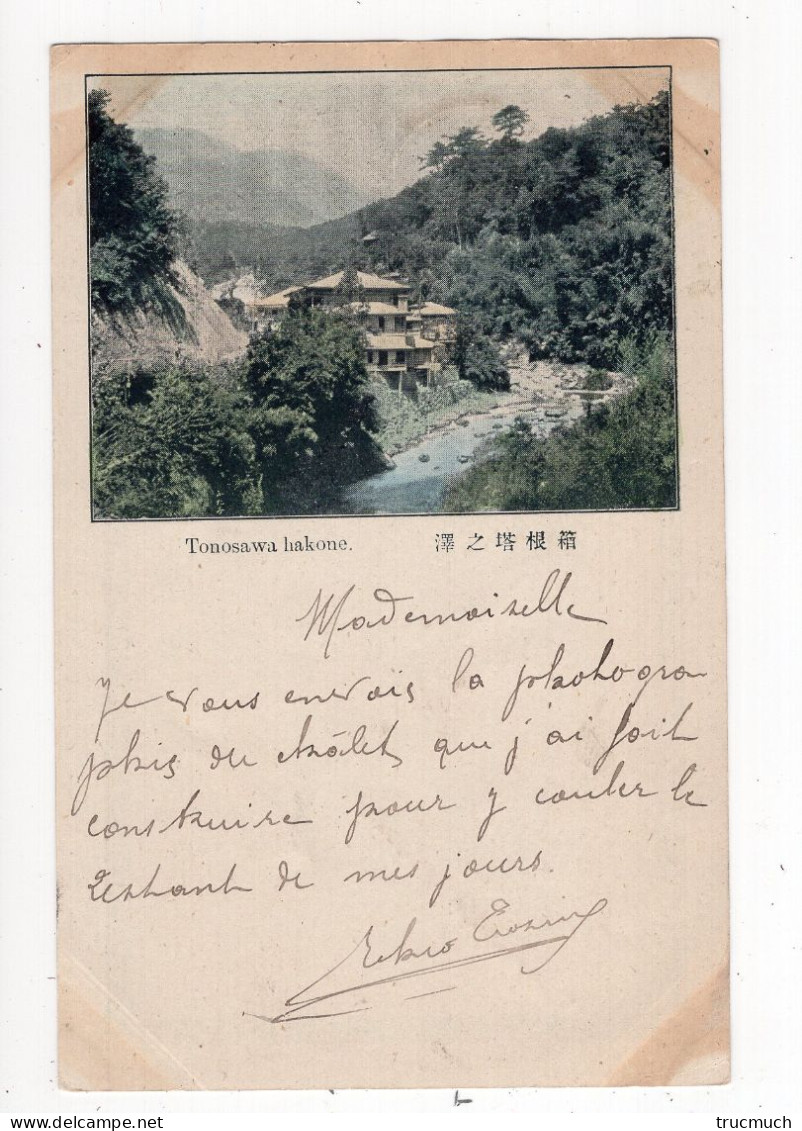 Tonosawa hakone.
澤之塔根箱
Mademoiselle
Je vous envois la photogra
phie du châlet que j'ai fait
construire pour y couler le
restant de mes jours.
trucmuch